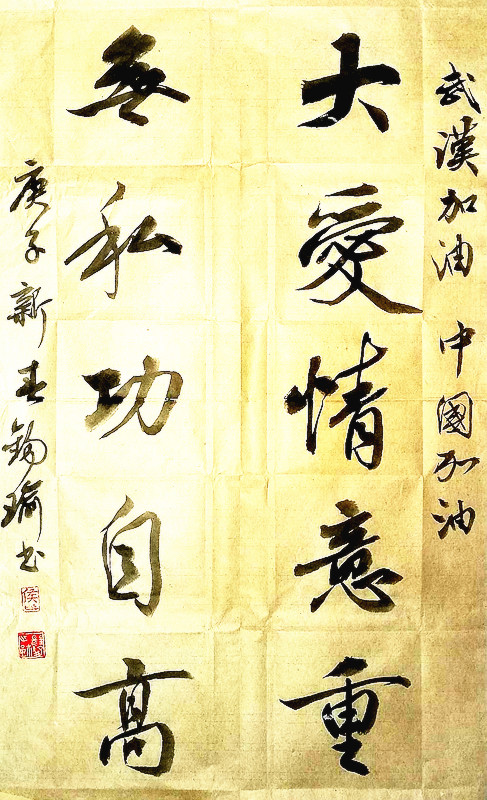 武漢加油 中國加油
大愛情意重
無私功自高
庚子新春錫瑜书